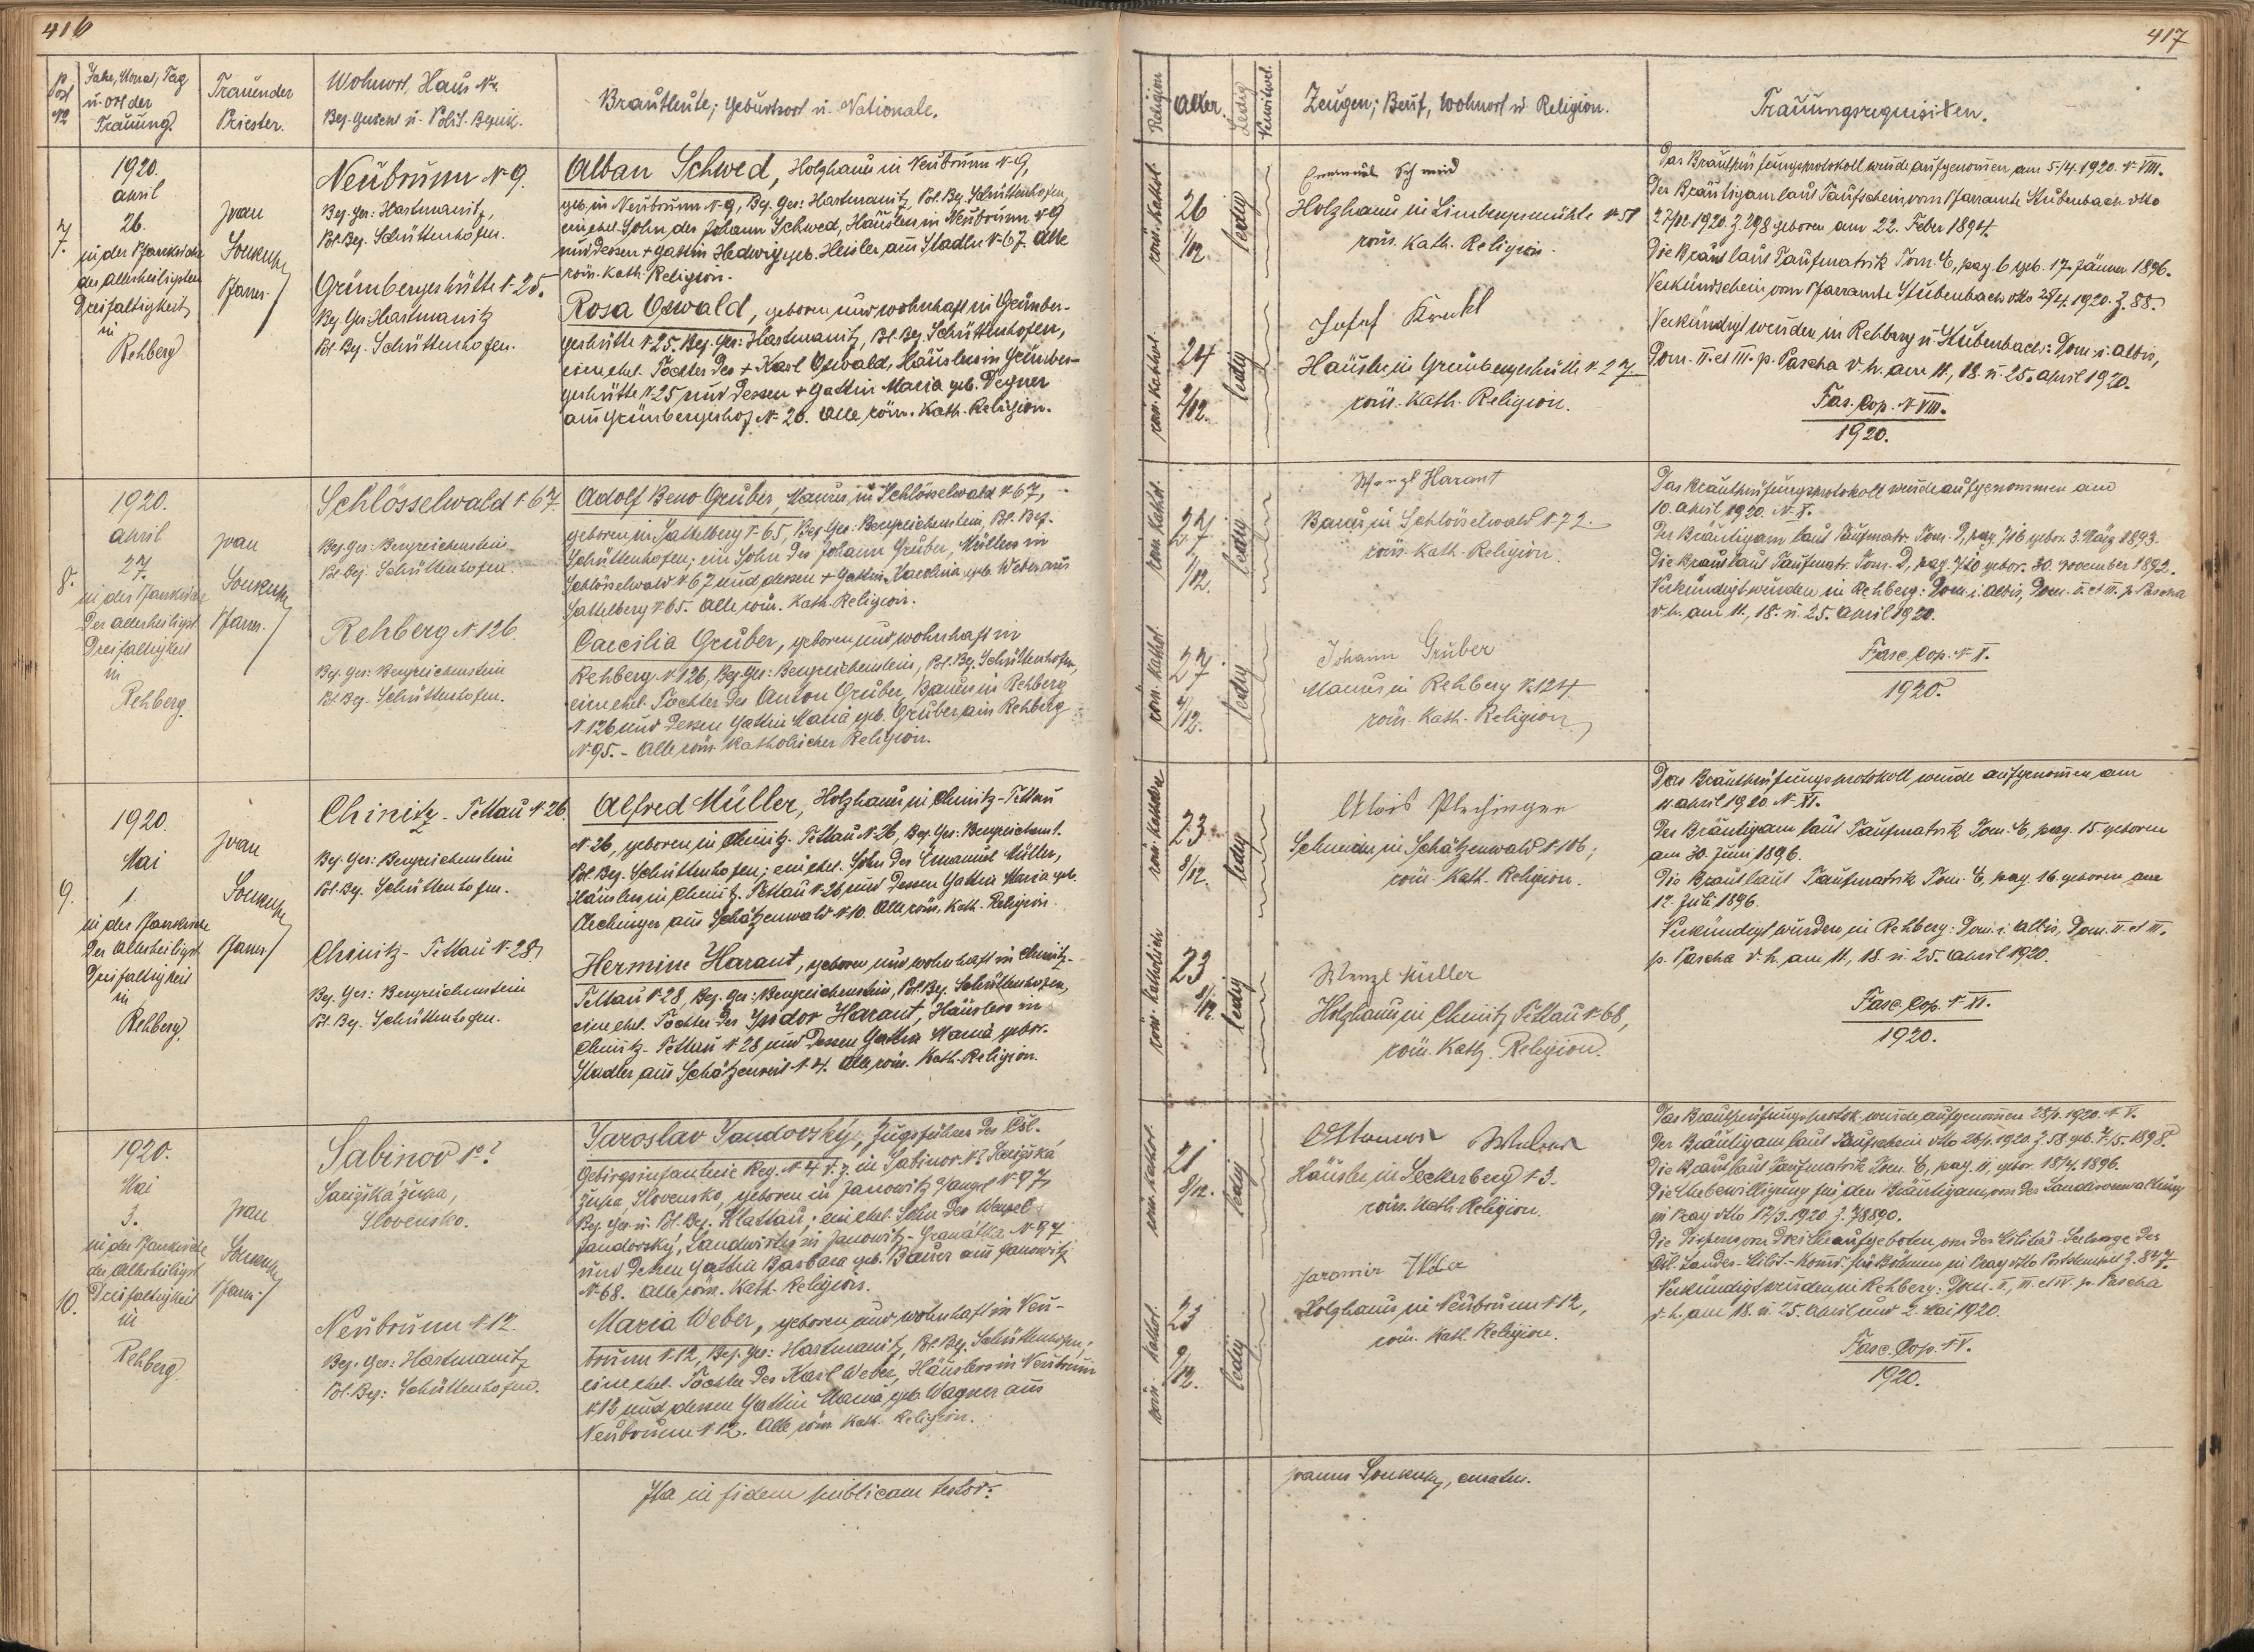 416
Post No
Jahr, Monat, Tag
u. Ort der
Trauung.
Trauender
Priester.
Wohnort, Haus No.
Bez. Gericht u. Polit. Bezirk.
Brautleute; Geburtsort u. Nationale.
7.
1920.
April
26.
in der Pfarrkirche
der Allerheiligsten
Dreifaltigkeit
in
Rehberg
Ivan
Soukup
Pfarrer
Neubrunn No 9.
Bez. Ger: Hartmanitz,
Pol. Bez. Schüttenhofen.
Grünbergerhütte No 25.
Bez. Ger. Hartmanitz
Pol. Bez. Schüttenhofen.
Alban Schwed, Holzhauer in Neubrunn No 9,
geb. in Neubrunn No 9, Bez. Ger: Hartmanitz, Pol. Bez. Schüttenhofen,
ein ehel. Sohn des Johann Schwed, Häuslers in Neubrunn No 9
und dessen + Gattin Hedwig geb. Heisler aus Stadln No 67. Alle
röm. kath. Religion.
Rosa Oswald, geboren und wohnhaft in Grünber-
gerhütte No 25. Bez. Ger: Hartmanitz, Pol. Bez. Schüttenhofen,
eine ehel. Tochter des + Karl Oswald, Häuslers in Grünber-
gerhütte No 25 und dessen + Gattin Maria geb. Degner
aus Grünbergerhof No 20. Alle röm. kath. Religion.
8.
1920.
April
27.
in der Pfarrkirche
der allerheiligst.
Dreifaltigkeit
in
Rehberg.
Ivan
Soukup
Pfarrer.
Schlösselwald No 67.
Bez. Ger: Bergreichenstein
Pol. Bez. Schüttenhofen.
Rehberg No 126.
Bez. Ger: Bergreichenstein
Pol. Bez. Schüttenhofen.
Adolf Beno Gruber, Maurer in Schlösselwald No 67,
geboren in Sattelberg No 65, Bez. Ger: Bergreichenstein, Pol. Bez.
Schüttenhofen; ein Sohn des Johann Gruber, Müllers in
Schlösselwald No 67 und dessen + Gattin Karolina geb. Weber aus
Sattelberg No 65. Alle röm. kath. Religion.
Caecilia Gruber, geboren und wohnhaft in
Rehberg No 126, Bez. Ger: Bergreichenstein, Pol. Bez. Schüttenhofen,
eine ehel. Tochter des Anton Gruber, Bauers in Rehberg
No 126 und dessen Gattin Maria geb. Gruber aus Rehberg
No 95. - Alle röm. katholischer Religion.
9.
1920.
Mai
1.
in der Pfarrkirche
der Allerheiligst.
Dreifaltigkeit
in
Rehberg.
Ivan
Soukup
Pfarrer
Chinitz-Tettau No 26.
Bez. Ger: Bergreichenstein
Pol. Bez. Schüttenhofen.
Chinitz-Tettau No 28.
Bez. Ger: Bergreichenstein
Pol. Bez. Schüttenhofen.
Alfred Müller, Holzhauer in Chinitz-Tettau
No 26, geboren in Chinitz-Tettau No 26, Bez. Ger. Bergreichenst.
Pol. Bez. Schüttenhofen; ein ehel. Sohn des Emanuel Müller,
Häuslers in Chinitz-Tettau No 26 und dessen Gattin Maria geb.
aus Schätzenwald No 10. Alle röm. kath. Religion.
Hermine Harant, geboren und wohnhaft in Chinitz-
Tettau No 28, Bez. Ger: Bergreichenstein, Pol. Bez. Schüttenhofen,
eine ehel. Tochter des Isidor Harant, Häuslers in
Chinitz-Tettau No 28 und dessen Gattin Maria gebor.
Stadler aus No 4. Alle röm. kath. Religion.
10.
1920.
Mai
3.
in der Pfarrkirche
der Allerheiligst.
Dreifaltigkeit
in
Rehberg
Ivan
Soukup
Pfarrer
Sabinov No ?
Šarišská župa,
Slovensko.
Neubrunn No 12.
Bez. Ger: Hartmanitz
Pol. Bez: Schüttenhofen.
Jaroslav Jandovský, Zugsführer des Čsl.
Gebirgsinfanterie Reg. No 4 d. z. in Sabinov No ? Šarišská
župa, Slovensko, geboren in Janowitz a/Angel No 97,
Bez. Ger. u. Pol. Bez. Klattau; ein ehel. Sohn des Wenzel
Jandovský, Landwirths in Janowitz- No 97
und dessen Gattin Barbara geb. Bauer aus Janowitz
No 68. Alle röm. kath. Religion.
Maria Weber, geboren und wohnhaft in Neu-
brunn No 12, Bez. Ger: Hartmanitz, Pol. Bez. Schüttenhofen,
eine ehel. Tochter des Karl Weber, Häuslers in Neubrunn
No 12 und dessen Gattin Maria geb. Wagner aus
Neubrunn No 12. Alle röm. kath. Religion.
Ita in fidem publicam testor:
417
Religion
Alter.
Ledig
Verwitwet.
Zeugen; Beruf, Wohnort u. Religion.
Trauungsrequisiten.
röm. kathol.
26
1/12.
ledig
röm. kathol.
24
3/12.
ledig
Emanuel Schmid
Holzhauer in Limbergermühle No 51
röm. kath. Religion.
Josef
Häusler in Grünbergerhütte No 27
röm. kath. Religion.
Das Brautprüfungsprotokoll wurde aufgenommen am 5./4. 1920. No VIII.
Der Bräutigam laut Taufschein vom Pfarramte Stubenbach dtto
1920. Z. 298 geboren am 22. Feber 1894.
Die Braut laut Taufmatrik Tom. E, pag. 6 geb. 17. Jänner 1896.
Verkündschein vom Pfarramte Stubenbach dtto 25/4. 1920. Z. 88.
Verkündigt wurden in Rehberg u. Stubenbach: Dom. i. albis,
Dom. II. et III. p. Pascha d. h. am 11., 18. u. 25. April 1920.
Fas. Cop. No VIII.
1920.
röm. kathol.
27
1/12.
ledig
röm. kathol.
27
4/12.
ledig
Wenzl Harant
Bauer in Schlösselwald No 72.
röm. kath. Religion.
Johann Gruber
Maurer in Rehberg No 124.
röm. kath. Religion
Das Brautprüfungsprotokoll wurde aufgenommen am
10. April 1920. No X.
Der Bräutigam laut Taufmatr. Tom. D, pag. 716 gebor. 3. März 1893.
Die Braut laut Taufmatr. Tom. D, pag. 710 gebor. 30. November 1892.
Verkündigt wurden in Rehberg: Dom. i. albis, Dom. II. et III. p. Pascha
d. h. am 11., 18. u. 25. April 1920.
Fasc. Cop. No X.
1920.
röm. katholisch
23
8/12.
ledig
röm. katholisch
23
9/12.
ledig
Alois Plechinger
Schneider in Schätzenwald No 106;
röm. kath. Religion.
Wenzl Müller
Holzhauer in Chinitz Tettau No 68,
röm. kath. Religion.
Das Brautprüfungsprotokoll wurde aufgenommen am
11. April 1920. No XI.
Der Bräutigam laut Taufmatrik Tom. E, pag. 15. geboren
am 30. Juni 1896.
Die Braut laut Taufmatrik Tom. E, pag. 16. geboren am
12. Juli 1896.
Verkündigt wurden in Rehberg: Dom. i. albis, Dom. II. et III.
p. Pascha d. h. am 11., 18. u. 25. April 1920.
Fasc. Cop. No XI.
1920.
röm. kathol.
21
8/12.
ledig
röm. kathol.
23
9/12.
ledig
Ottomar
Häusler in Seckerberg No 3.
röm. kath. Religion.
Jaromir
Holzhauer in Neubrunn No 12,
röm. kath. Religion.
Das Brautprüfungsprotok. wurde aufgenommen 28/2. 1920. No V.
Der Bräutigam laut Taufschein dtto 26/1. 1920. Z. 58 geb. 7./5. 1898.
Die Braut laut Taufmatrik Tom. E, pag. 11. gebor. 18/4. 1896.
Die Ehebewilligung für den Bräutigam von der Landesverwaltung
in Prag dtto 12/3. 1920 Z. 78890.
Die Dispens vom Dreitheaufgeboten von der Militär-Seelsorge des
Čsl. Landes-Milit.-Komd. für Böhmen in Prag dtto Z. 847.
Verkündigt wurden in Rehberg: Dom. II., III. et IV. p. Pascha
d. h. am 18. u. 25. April und 2. Mai 1920.
Fasc. Cop. No V.
1920.
Joannes Soukup, curatus.